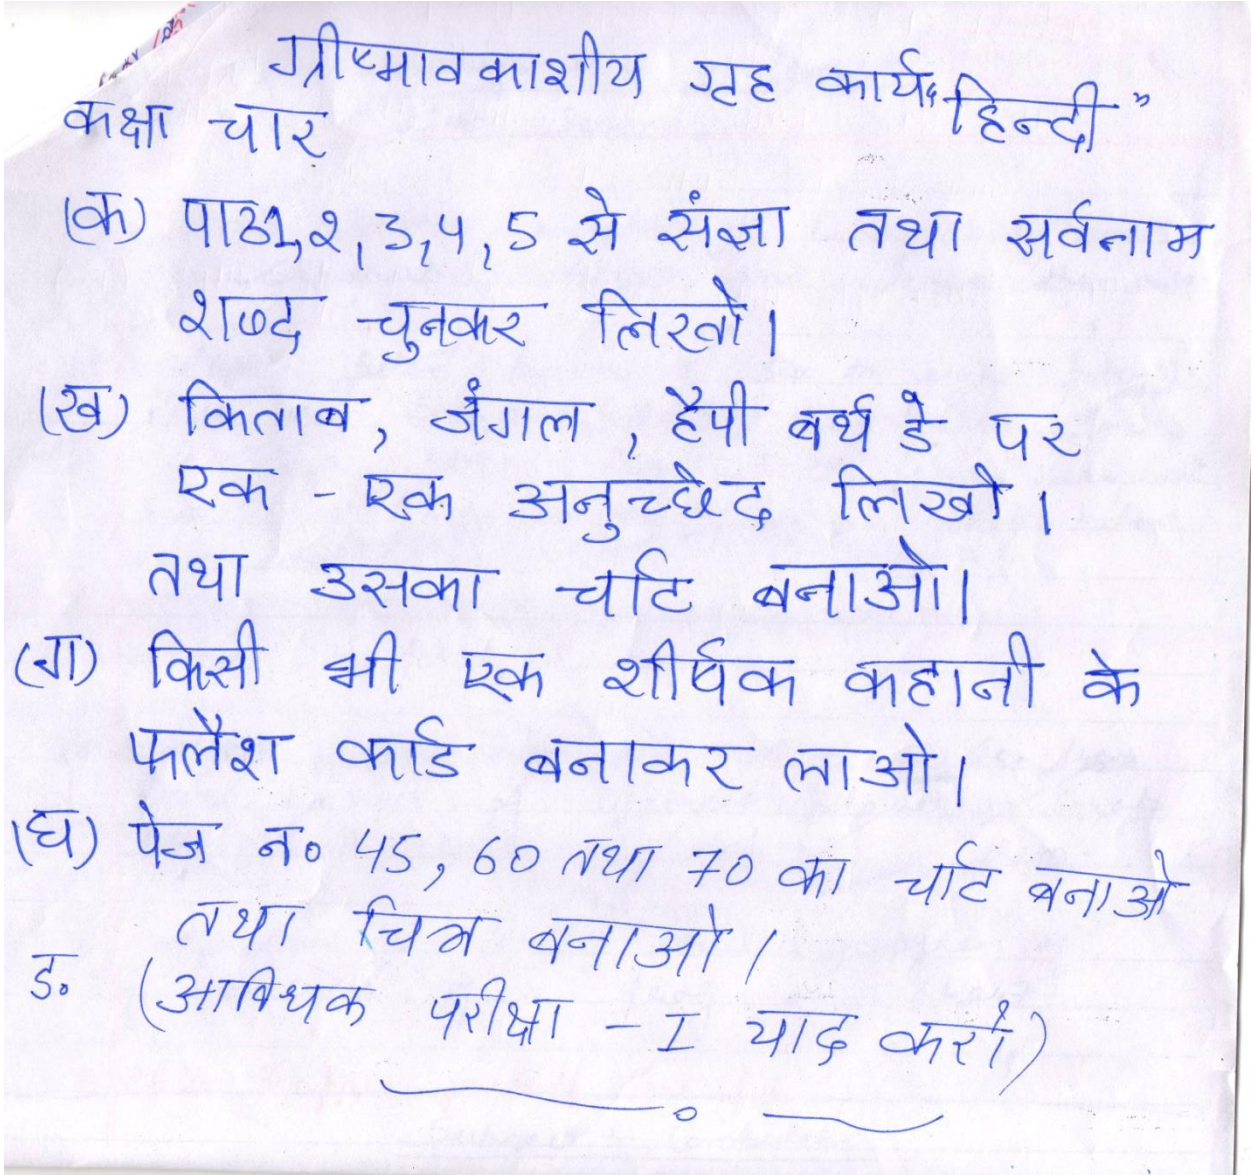 ग्रीष्मावकाशीय गृह कार्य "हिन्दी"
कक्षा चार
(क) पाठ1,2,3,4,5 से संज्ञा तथा सर्वनाम
शब्द चुनकर लिखो।
(ख) किताब, जंगल, हैपी बर्थ डे पर
एक - एक अनुच्छेद लिखो।
तथा उसका चार्ट बनाओ।
(ग) किसी भी एक शीर्षक कहानी के
फ्लैश कार्ड बनाकर लाओ।
(घ) पेज न॰ 45, 60 तथा 70 का चार्ट बनाओ
तथा चित्र बनाओ।
ङ. (आवधिक परीक्षा - I याद करो)